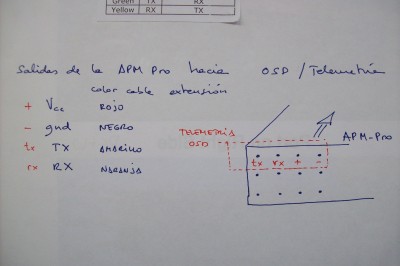 Green TX RX
Yellow RX TX
Salidas de la APM Pro hacia OSD / Telemetría
color cable extensión
+ Vcc ROJO
- gnd NEGRO
tx TX AMARILLO
rx RX NARANJA
TELEMETRÍA
OSD
APM-Pro
tx rx + -